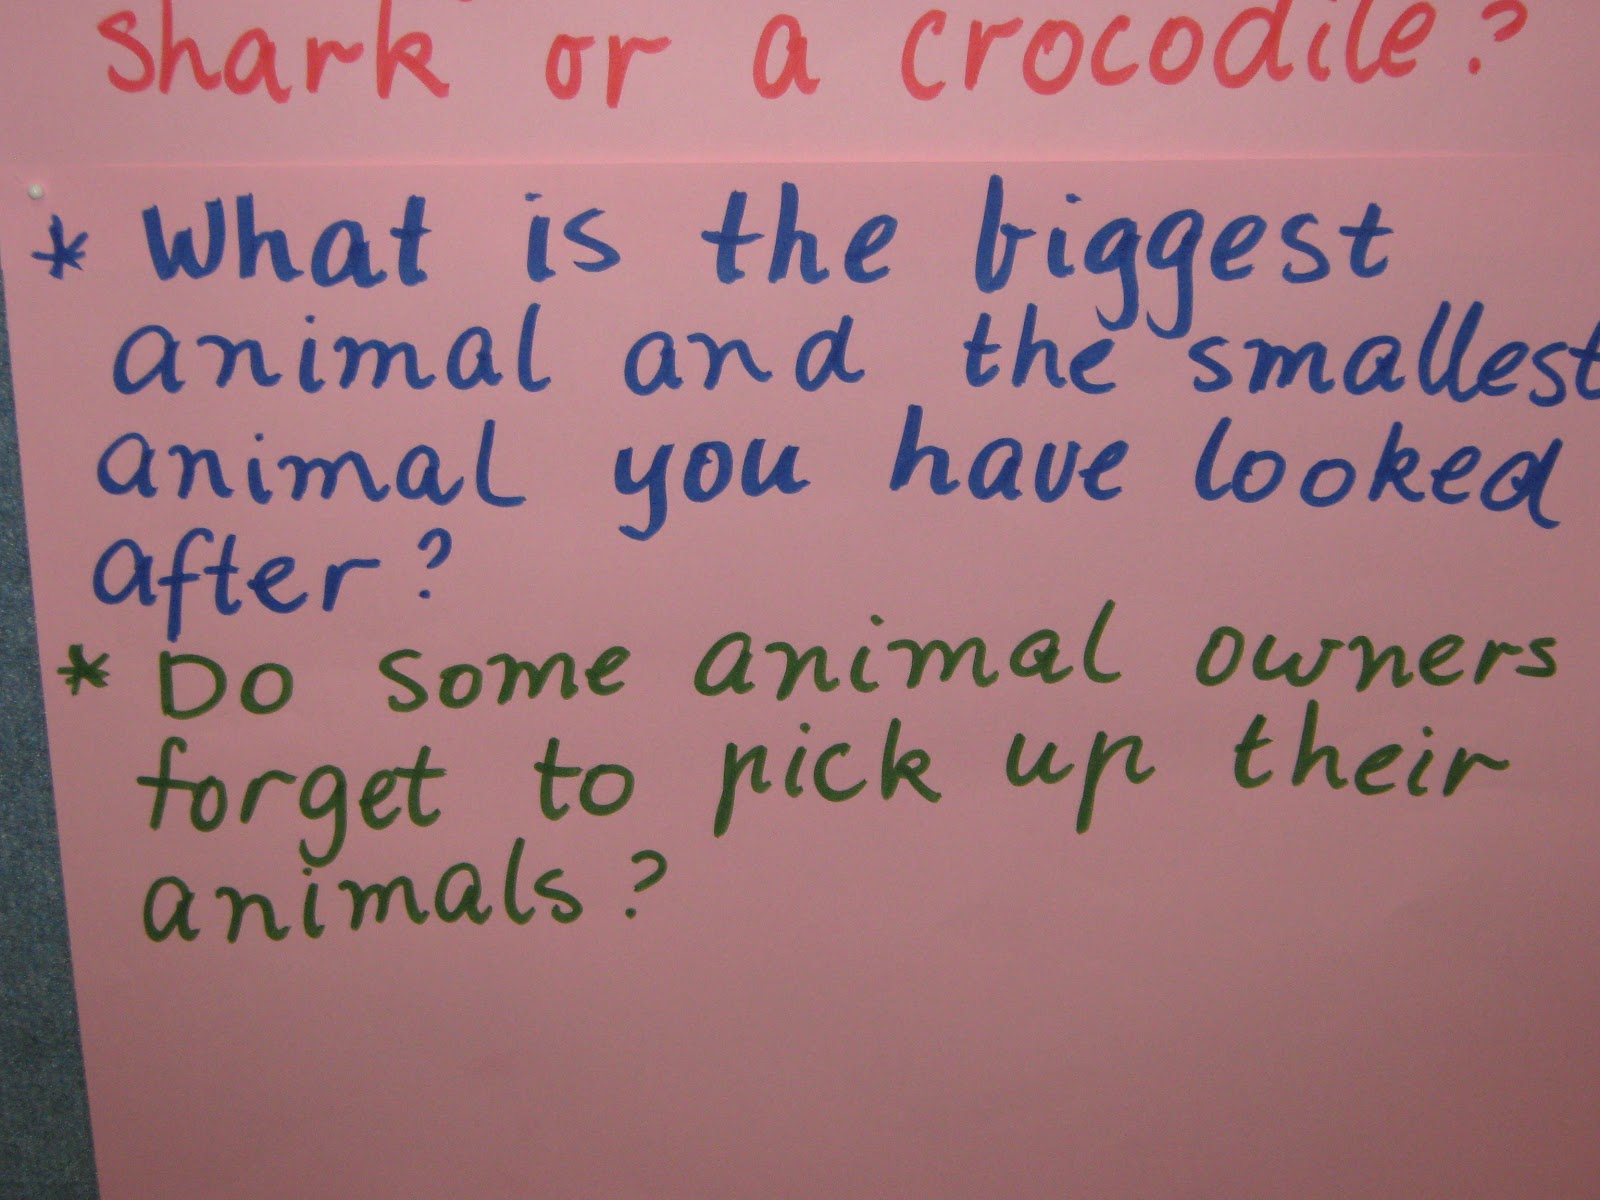 shark or a crocodile?
* What is the biggest
animal and the smallest
animal you have looked
after?
* Do some animal owners
forget to pick up their
animals?